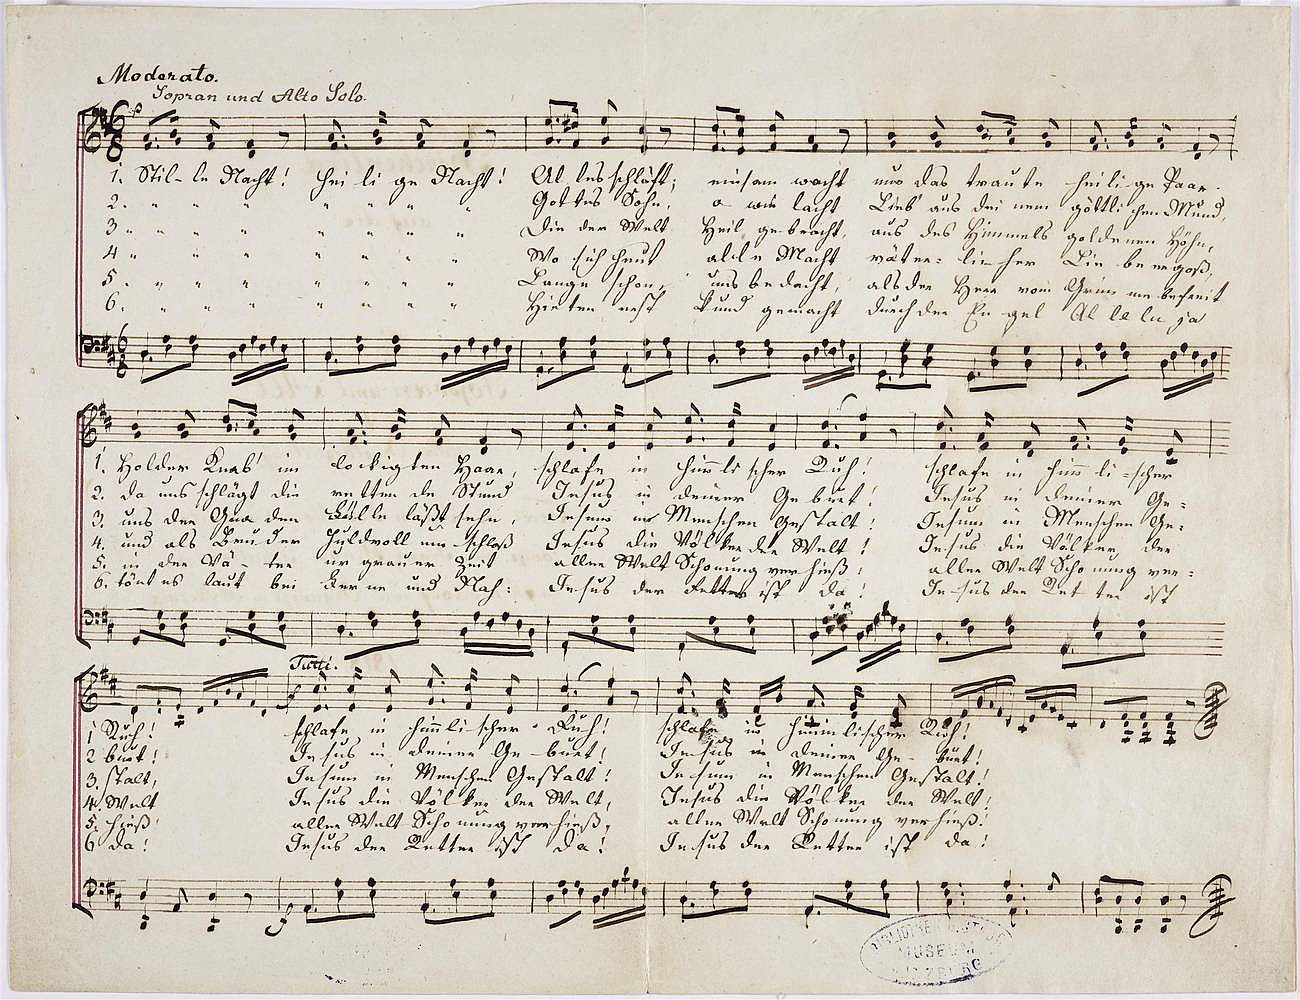 Moderato.
Sopran und Alto Solo.
1. Stil-le Nacht! Hei li ge Nacht! Al les schläft; einsam wacht nur das traute heili ge Paar.
2. " " " " " " " Gottes Sohn, o wie lacht Lieb' aus dei nem göttli chen Mund,
3 " " " " " " " Die der Welt Heil gebracht, aus des Himmels goldenen Höhn,
4 " " " " " " " Wo sich heut alle Macht väter- licher Lie be ergoß,
5 " " " " " " " Lange schon, uns bedacht, als der Herr vom Grim me befreit
6. " " " " " " " Hirten erst kund gemacht durch der En gel Al le lu ja
1. Holder Knab' im lockigten Haar, schlafe in himli scher Ruh! schlafe in him li-scher
2. da uns schlägt die retten de Stund Jesus in deiner Ge burt! Jesus in deiner Ge-
3. uns der Gna den Fülle läßt sehn, Jesum in Menschen Gestalt! Jesum in Menschen Ge-
4. und als Bruder Huldvoll um schloß Jesus die Völker der Welt! Jesus die Völker der
5. in der Vä-ter ur grauer Zeit aller Welt Schonung verhieß! aller Welt Scho nung ver-
6. tönt es laut bei Ferne und Nah: Je-sus der Retter ist da! Je-sus der Ret ter ist
Tutti.
1 Ruh! schlafe in himmli scher Ruh! schlafe in himmlischer Ruh!
2 burt! Jesus in deiner Ge-burt! Je-sus in deiner Ge-burt!
3. stalt, Jesum in Menschen Gestalt! Je-sum in Menschen Gestalt!
4. Welt Jesus die Völker der Welt, Jesus die Völker der Welt!
5. hieß! aller Welt Schonung verhieß, aller Welt Schonung verhieß!
6 da! Jesus der Retter ist da! Je-sus der Retter ist da!
MUSEUM